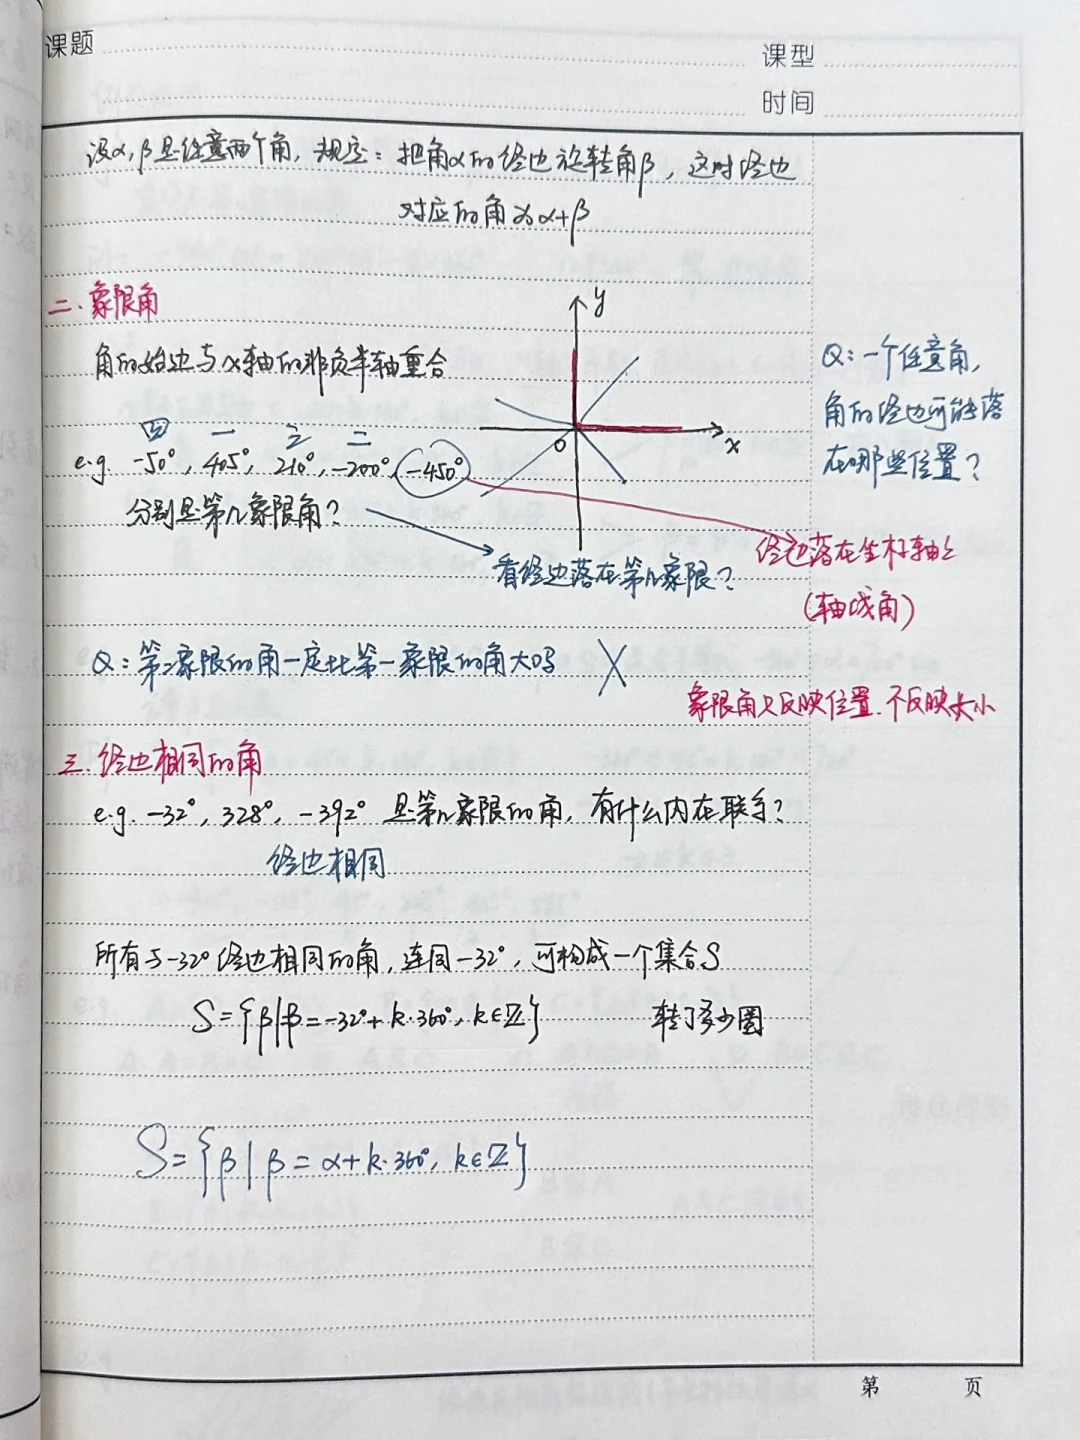 课题
课型
时间
设α,β是任意两个角,规定:把角α的终边旋转角β,这时终边
对应的角为α+β
二.象限角
y
角的始边与x轴的非负半轴重合
Q:一个任意角,
角的终边可能落
在哪些位置?
四 一 三 二
0
x
e.g -50°,405°,210°,-200°,-450°
分别是第几象限角?
终边落在坐标轴上
看终边落在第几象限?
(轴线角)
Q:第二象限的角一定比第一象限的角大吗
象限角只反映位置.不反映大小
三.终边相同的角
e.g.-32°,328°,-392°是第几象限的角,有什么内在联系?
终边相同
所有与-32°终边相同的角,连同-32°,可构成一个集合S
S={β|β=-32°+k·360°,k∈Z} 转了多少圈
S={β|β=α+k·360°,k∈Z}
第 页